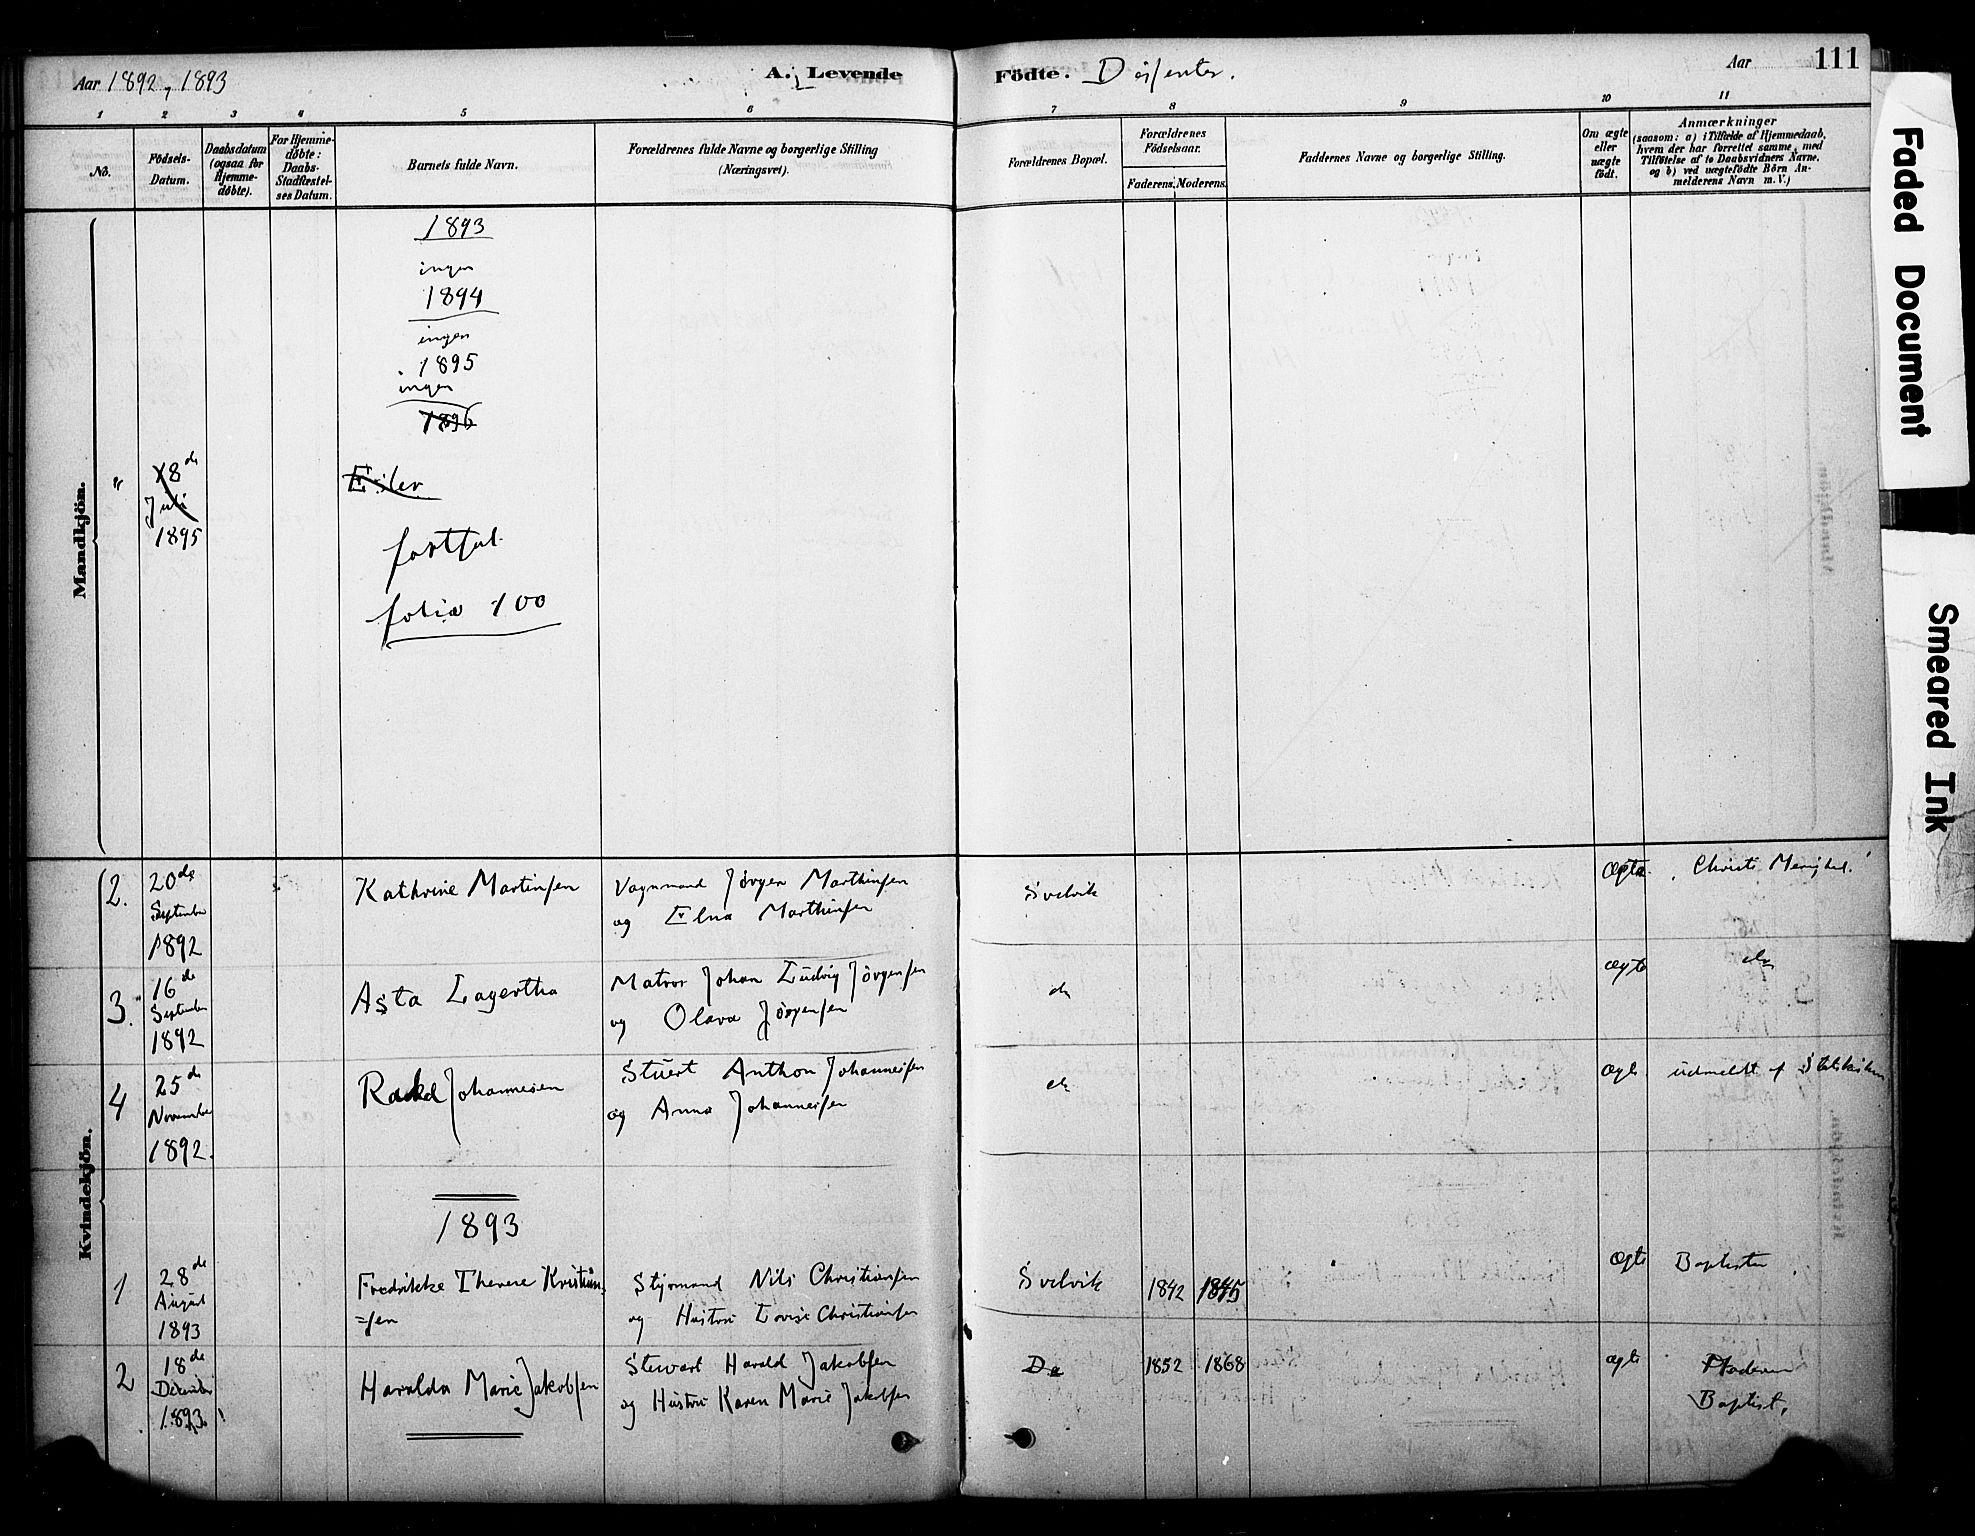 Aar 1892, 1893
A. Levende
Födte. Disfenter.
Aar
111
1 2 3 4 5 6 7 8 9 10 11
No.
Födsels-
Datum.
Daabsdatum
(ogsaa for
Hjemme-
döbte).
For Hjemme-
döbte:
Daabs-
Stadfæstel-
ses Datum.
Barnets fulde Navn.
Forældrenes fulde Navne og borgerlige Stilling
(Næringsvei).
Forældrenes Bopæl.
Forældrenes
Födselsaar.
Faderens. Moderens.
Faddernes Navne og borgerlige Stilling.
Om ægte
eller
uægte
födt.
Anmærkninger
(saasom: a) i Tilfælde af Hjemmedaab,
hvem der har forrettet samme, med
Tilföielse af to Daabsvidners Navne,
og b) ved uægtefödte Börn An-
melderens Navn m. V.)
Mandkjön.
1893
ingen
1894
ingen
1895
ingen
1896
" 18de
Juli
1895
Eiler
fortsat
folio 100
Kvindekjön.
2. 20de
September
1892
Kathrine Martinsen
Vognmand Jørgen Marthinsen
og Elna Marthinsen
Svelvik
Ægte
Christi Menighed.
3. 16de
September
1892
Asta Lagertha
Matros Johan Ludvig Jørgensen
og Olava Jørgensen
do
Ægte
do
4 25de
November
1892.
Rakel Johannesen
Stuert Anthon Johannesen
og Anna Johannesen
do
Ægte
udmeldt af Statskirken
1893
1 28de
August
1893
Fredrikke Therese Kristian-
=sen
Styrmand Nils Christiansen
og Hustru Lovise Christiansen
Svelvik
1842 1845
Ægte
Baptister
2 18de
December
1893.
Haralda Marie Jakobsen
Stewart Harald Jakobsen
og Hustru Karen Marie Jakobsen
Do
1852 1868
ægte
Moderen
Baptist.
Faded Document
Smeared Ink